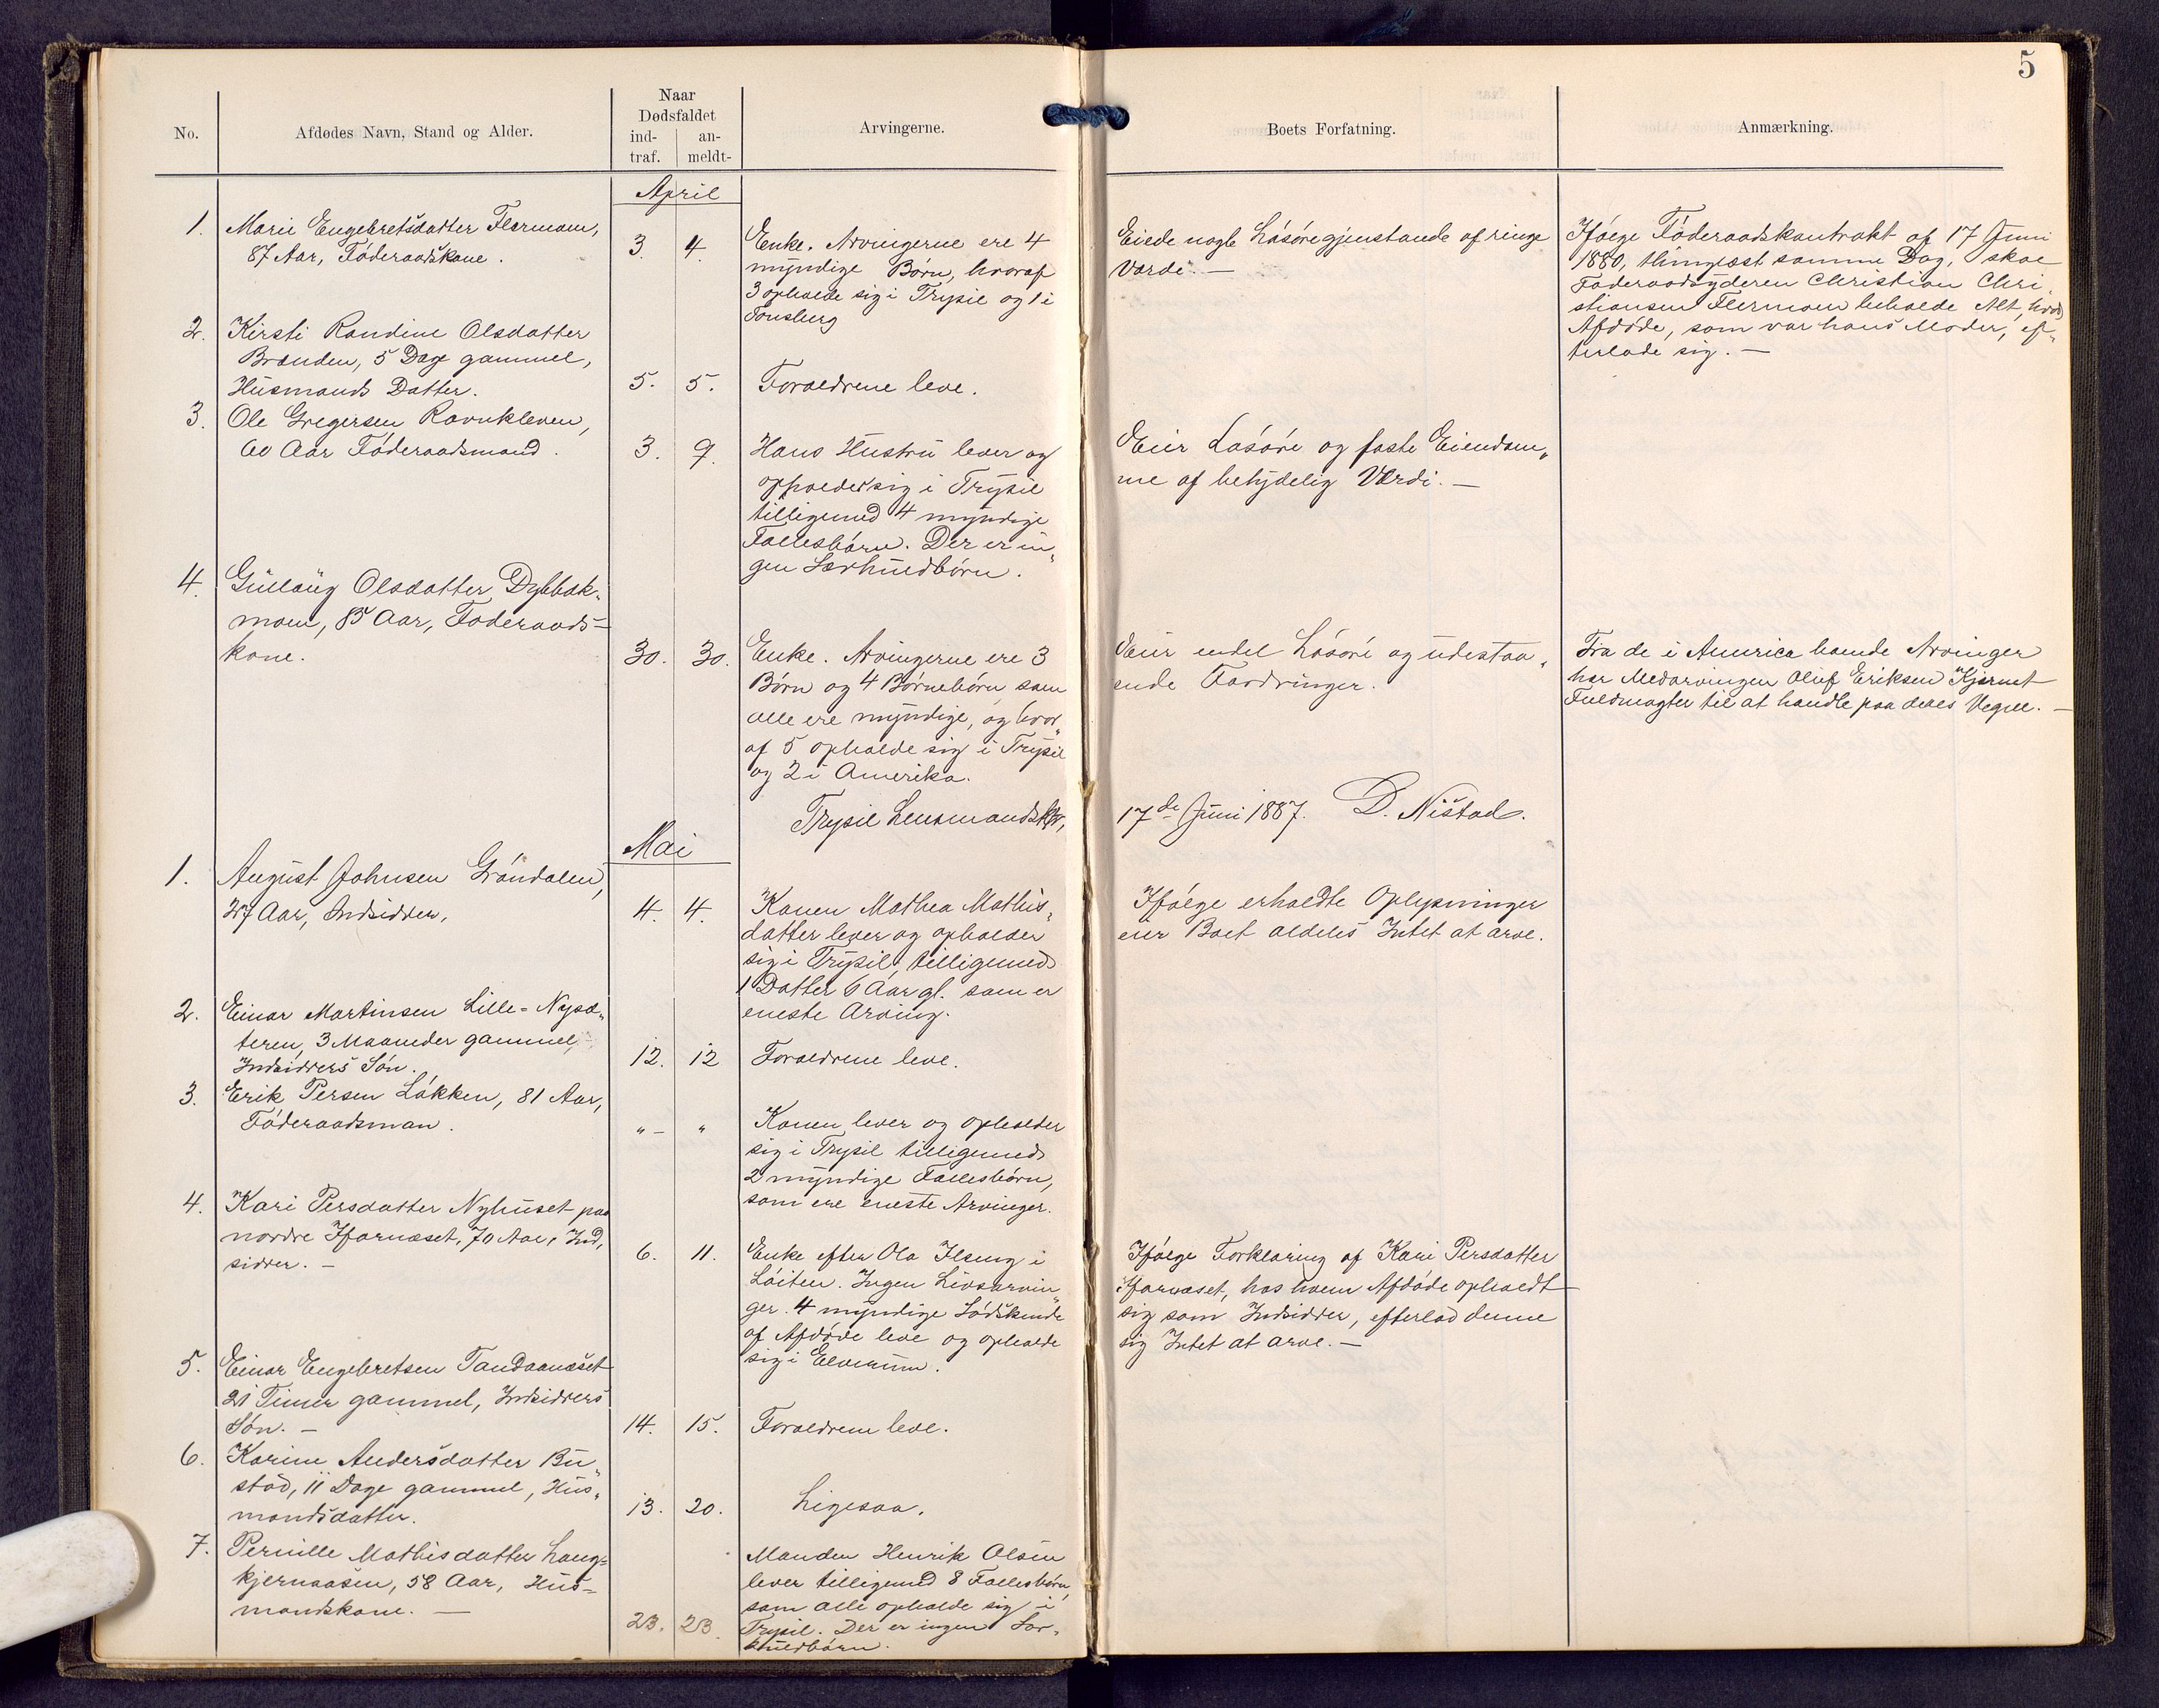 5
No.
Afdødes Navn, Stand og Alder.
Naar
Dødsfaldet
ind-
traf.
an-
meldt-
Arvingerne.
Boets Forfatning.
Anmærkning.
April
1. Marie Engebretsdatter Flermoen,
87 Aar, Føderaadskone.
3. 4.
Enke. Arvingerne ere 4
myndige Børn, hvoraf
3 opholde sig i Trysil og 1 i
Tønsberg
Eiede nogle Løsøregjenstande af ringe
Værdi. —
Ifølge Føderaadskontrakt af 17 Juni
1880, thinglæst samme Dag, skal
Føderaadsyderen Christian Chri-
stiansen Flermoen beholde Alt, hvad
Afdøde, som var hans Moder, ef-
terlade sig. —
2. Kirsti Randine Olsdatter
Brænden, 5 Dage gammel,
Husmands Datter.
5. 5.
Forældrene leve.
3. Ole Gregersen Ravnkleven,
60 Aar Føderaadsmand.
3. 9.
Hans Hustru lever og
opholder sig i Trysil
tilligemed 4 myndige
Fællesbørn. Der er in„
gen Særkuldbørn.
Eier Løsøre og faste Eiendom„
me af betydelig Værdi. —
4. Gulaug Olsdatter Dybbæk-
moen, 85 Aar, Føderaads-
kone.
30. 30.
Enke. Arvingerne ere 3
Børn og 4 Børnebørn som
alle ere myndige, og hvor„
af 5 opholde sig i Trysil
og 2 i Amerika.
Eier endel Løsøre og udestaa„
ende Fordringer.
Fra de i America boende Arvinger
har Medarvingen Oluf Eriksen Kjernet
Fuldmagter til at handle paa deres Vegne. —
Trysil Lensmandsktr, 17de Juni 1887. D. Nistad.
Mai
1. August Johnsen Gröndalen,
27 Aar, Indsidder,
4. 4.
Konen Mathea Mathis„
datter lever og opholder
sig i Trysil, tilligemed
1 Datter 6 Aar gl. som er
eneste Arving.
Ifølge erholdte Oplysninger
eier Boet aldeles Intet at arve.
2. Einar Martinsen Lille-Nysæ„
teren, 3 Maaneder gammel,
Indsidders Søn.
12. 12
Forældrene leve.
3. Erik Persen Løkken, 81 Aar,
Føderaadsman.
„ — „
Konen lever og opholder
sig i Trysil tilligemed
2 myndige Fællesbørn,
som ere eneste Arvinger.
4. Kari Persdatter Nyhuset paa
nordre Sfarnæset, 70 Aar, Ind„
sidder. —
6. 11.
Enke efter Ola Ilseng i
Løiten. Ingen Livsarvin„
ger. 4 myndige Sødskende
af Afdøde leve og opholde
sig i Elverum.
Ifølge Forklaring af Kari Persdatter
Sfarnæset, hos hvem Afdøde opholdt
sig som Indsidder, efterlod denne
sig Intet at arve. —
5. Einar Engebretsen Tandaanæset
21 Timer gammel, Indsidders
Søn. —
14. 15.
Forældrene leve.
6. Karine Andersdatter Bu„
stad, 11 Dage gammel, Hus„
mandsdatter.
13. 20.
Ligesaa.
7. Pernille Mathisdatter Lang-
kjernaasen, 58 Aar, Hus-
mandskone. —
23. 23.
Manden Henrik Olsen
lever tilligemed 8 Fællesbørn,
som alle opholde sig i
Trysil. Der er ingen Sær„
kuldbørn.